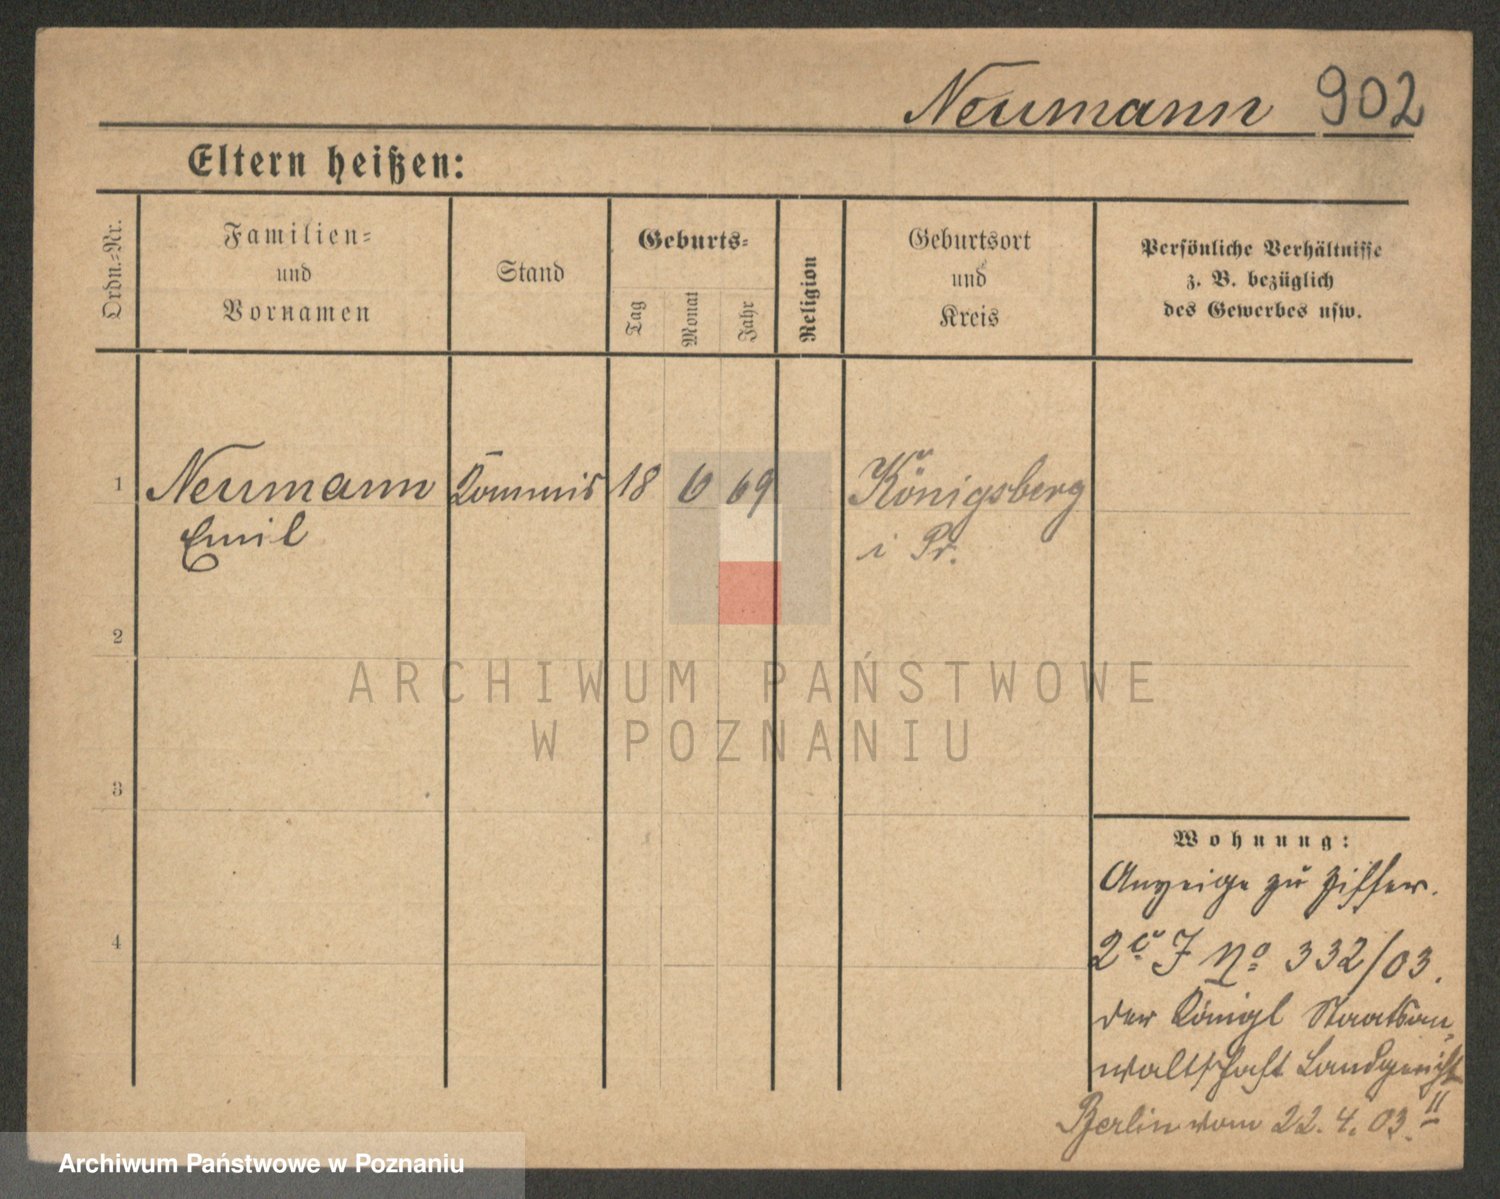 Neumann 902
Eltern heißen:
Ordn.=Nr.
Familien=
und
Vornamen
Stand
Geburts=
Tag
Monat
Jahr
Religion
Geburtsort
und
Kreis
Persönliche Verhältnisse
z. B. bezüglich
des Gewerbes usw.
1 Neumann Kommis 18 6 69 Königsberg
Emil i Pr.
2
ARCHIWUM PAŃSTWOWE
W POZNANIU
3
Wohnung:
Anzeige zu Ziffer.
4
2c J No 332/03.
der Königl Staatsan„
waltschaft Landgericht
Berlin II vom 22. 4. 03.
Archiwum Państwowe w Poznaniu